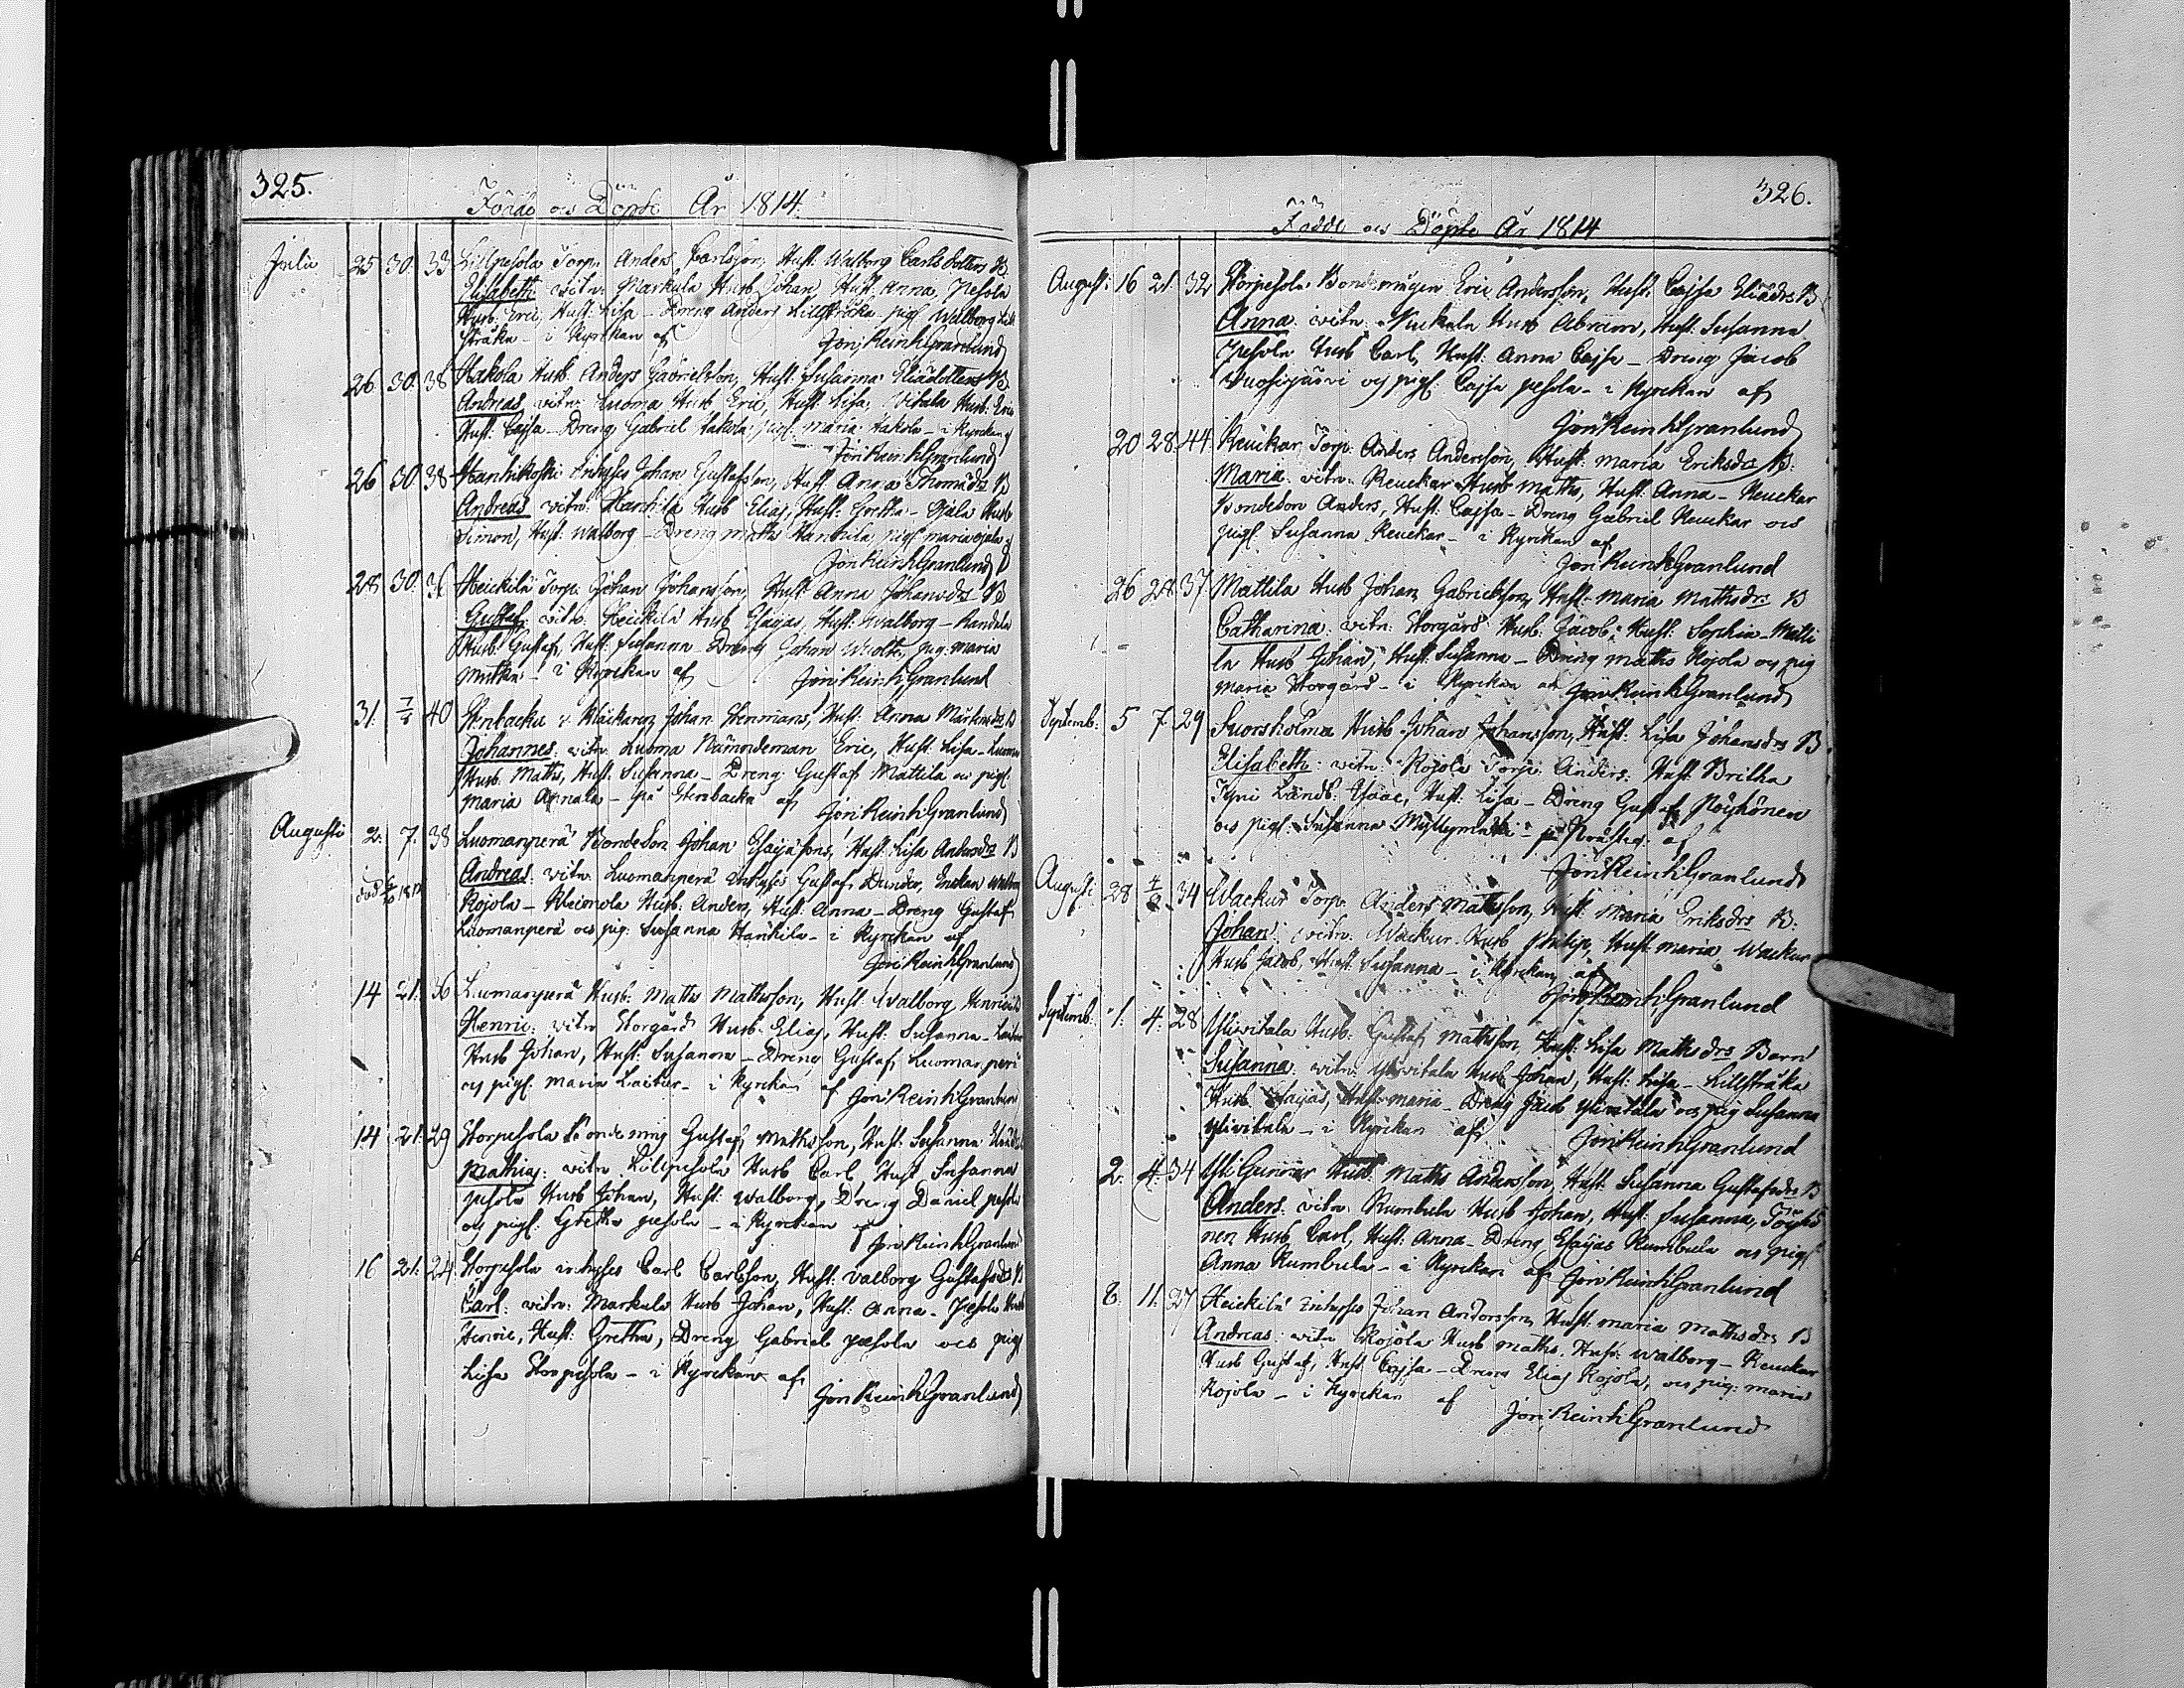 325.
Födde och Döpte År 1814.
Julii 25 30. 33 Lillpesola Torp. Anders Carlsson, Hust. Walborg Carlsdotters B.
Elisabeth. witn. Markula Husb. Johan Hust. Anna, Pesola
Husb. Eric, Hust. Lisa – Dreng Anders Lillstråka pig. Walborg Lill
stråka – i Kyrckan af Jon: Reinh Granlund
26. 30. 38 Hakola Husb. Anders Gabrielsson, Hust. Susanna Eliædotters B.
Andreas witn. Luoma Husb Eric, Hust. Lisa, Vitala Husb: Eric
Hust. Cajsa – Dreng Gabriel Hakola pigl. Maria Hakola – i Kyrckan af
Jon: Reinh Granlund
26 30. 38 Hanhikoski Inhyses Johan Gustafsson, Hust. Anna Thomædrs B
Andreas witn. Hankila Husb Elias, Hust: Gretha – Ojala Husb
Simon, Hust. Walborg – Dreng Maths Hankila, pigl. Maria Ojala af
Jon: Reinh Granlund
28. 30. 36 Heickilä Torp. Johan Johansson, Hust Anna Johansdrs B
Gustaf. witn. Heickilä Husb Esaijas, Hust: Walborg – Randela
Husb. Gustaf, Hust. Susanna – Dreng Johan, pig: Maria
– i Kyrckan af Jon: Reinh Granlund
31. 7/8 40 Stenbacka Klåckaren Johan Stenmans, Hust: Anna Mårtensdrs B
Johannes. witn. Luoma Nämndeman Eric, Hust. Lisa – Luoma
Husb. Maths, Hust. Susanna – Dreng Gustaf Mattila oc pigl.
Maria – på Stenbacka af Jon: Reinh Granlund
Augusti 2. 7. 38 Luomanperä Bondeson Johan Esaijæsons, Hust: Lisa Andersdrs B
Andreas. witn. Luomanperä Inhyses Gustaf, Enckan Walborg
Kojola – Husb. Anders, Hust: Anna – Dreng Gustaf
Luomanperä och pig: Susanna Hankila – i Kyrckan af
Jon: Reinh Granlund
14 21. 36 Luomanperä Husb: Maths Mathsson, Hust. Walborg Henricsdrs
Henric. witn. Storgård Husb. Elias, Hust: Susanna –
Husb Johan, Hust: Susanna – Dreng Gustaf Luomanperä
oc pigl. Maria Laitur – i Kyrckan af Jon: Reinh Granlund
14 21. 29 Storpesola Bondemåg Gustaf Mathsson, Hust: Susanna
Mathias. witn. Lillpesola Husb Carl Hust. Susanna
Pesola Husb Johan, Hust: Walborg, Dreng Daniel Pesola
oc pigl: Gretha Pesola – i Kyrckan af Jon: Reinh Granlund
16 21. 24 Storpesola inhyses Carl Carlsson, Hust: Valborg Gustafsdrs B
Carl: witn: Markula Husb Johan, Hust: Anna – Pesola Husb
Henric, Hust: Gretha, Dreng Gabriel Pesola och pigl
Lisa Storpesola – i Kyrckan af
Jon: Reinh Granlund
326.
Födde och Döpte År 1814
August: 16 21. 32 Storpesola Bondemågen Eric Andersson, Hust: Cajsa Eliædrs B
Anna. witn. Nuckala Husb Abram, Hust: Susanna
Pesola Husb Carl, Hust: Anna Cajsa – Dreng Jacob
Vuosijärvi oc pigl: Cajsa Pesola – i Kyrckan af
Jon: Reinh Granlund
20 28. 44. Reuckar Torp. Anders Andersson, Hust: Maria Eriksdrs B.
Maria. witn. Reuckar Husb Maths, Hust. Anna – Reuckar
Bondeson Anders, Hust: Cajsa – Dreng Gabriel Reuckar och
pigl. Susanna Reuckar – i Kyrckan af
Jon: Reinh Granlund
26 28. 37. Mattila Husb Johan Gabrielsson, Hust: Maria Mathsdrs B
Catharina: witn: Storgård Husb: Jacob, Hust: Sophia – Matti
la Husb Johan, Hust: Susanna – Dreng Maths Kojola oc pig
Maria Storgård – i Kyrckan af Jon: Reinh Granlund
Septemb: 5 7. 29 Husb Johan Johansson, Hust: Lisa Johansdrs B.
Elisabeth: witn: Kojola Torp: Anders. Hust. Britha
Isaac, Hust: Lisa – Dreng Gustaf Pöyhönen
och pigl: Susanna Myllymäki – på Prästeg: af
Jon: Reinh Granlund
Augusti 28 4/9 34 Wackur Torp. Anders Mathsson, Hust: Maria Eriksdrs B.
Johan: witn. Wackur Husb Philip, Hust Maria, Wackur
Husb Jacob, Hust: Susanna – i Kyrckan af
Jon: Reinh Granlund
Septemb. 1. 4. 28 Ylivitala Husb. Gustaf Mathsson, Hust: Lisa Mathsdrs Barn
Susanna. witn. Ylivitala Husb Johan, Hust: Lisa – Lillstråka
Husb Esaijas, Hust. Maria – Dreng Jacob Ylivitala oc pig Susanna
Ylivitala – i Kyrckan af Jon: Reinh Granlund
2. 4. 34 Yli Gunnar Husb. Maths Andersson, Hust: Susanna Gustafsdrs B
Anders. witn. Rumbula Husb Johan, Hust. Susanna, Pöyhö
nen Husb Carl, Hust: Anna – Dreng Esaijas Rumbula och pigl
Anna Rumbula – i Kyrckan af Jon: Reinh Granlund
8. 11. 27 Heickilä Inhyses Johan Andersson, Hust. Maria Mathsdrs B
Andreas. witn Kojola Husb Maths. Hust: Walborg – Reuckar
Husb Gustaf, Hust Cajsa – Dreng Elias Kojola, och pig: Maria
Kojola – i Kyrckan af Jon: Reinh Granlund